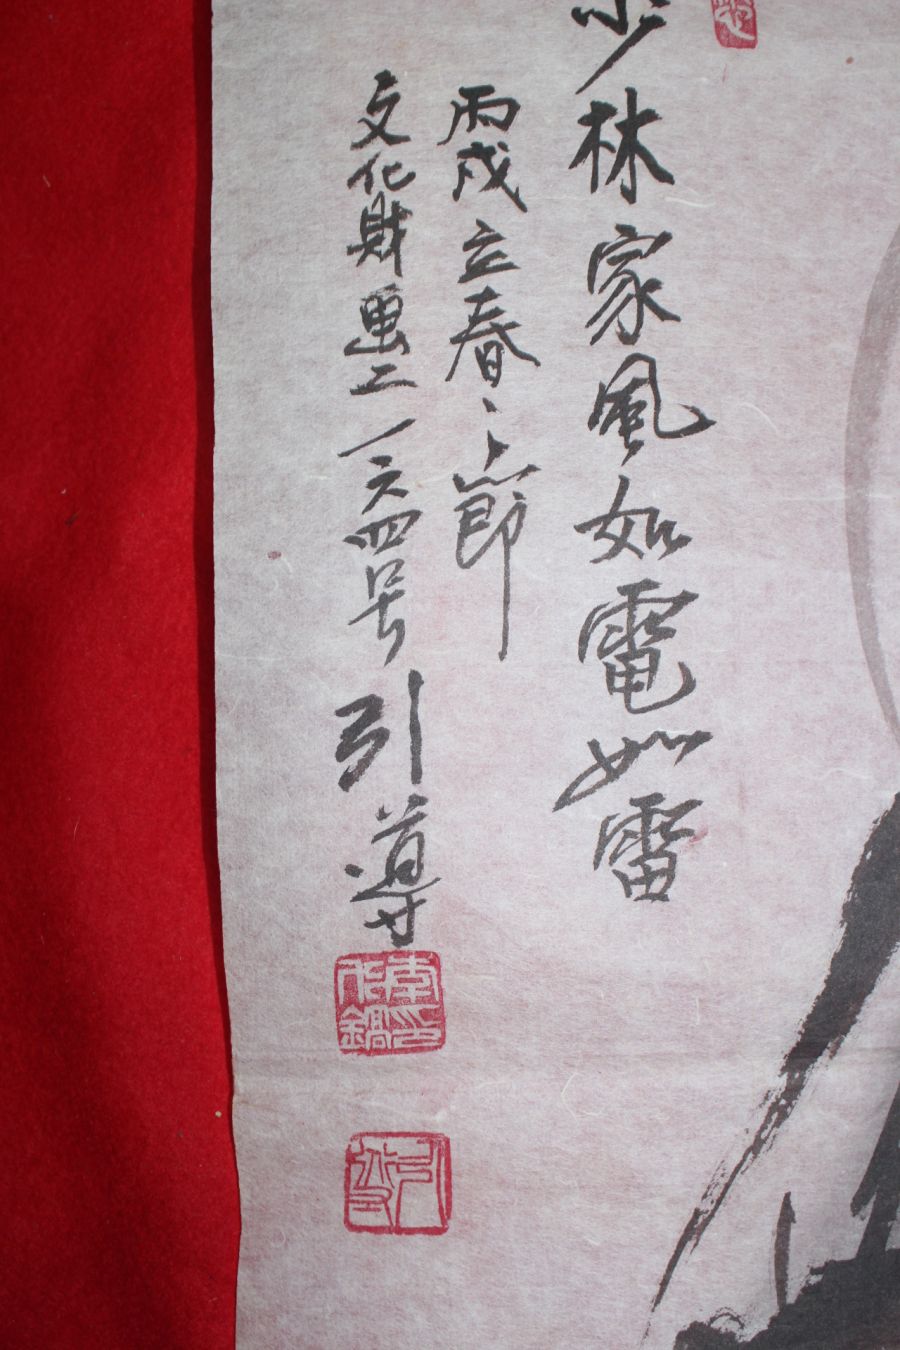 少林家風如電如雷
丙戌立春之節
文化財畵二一六四号 引導